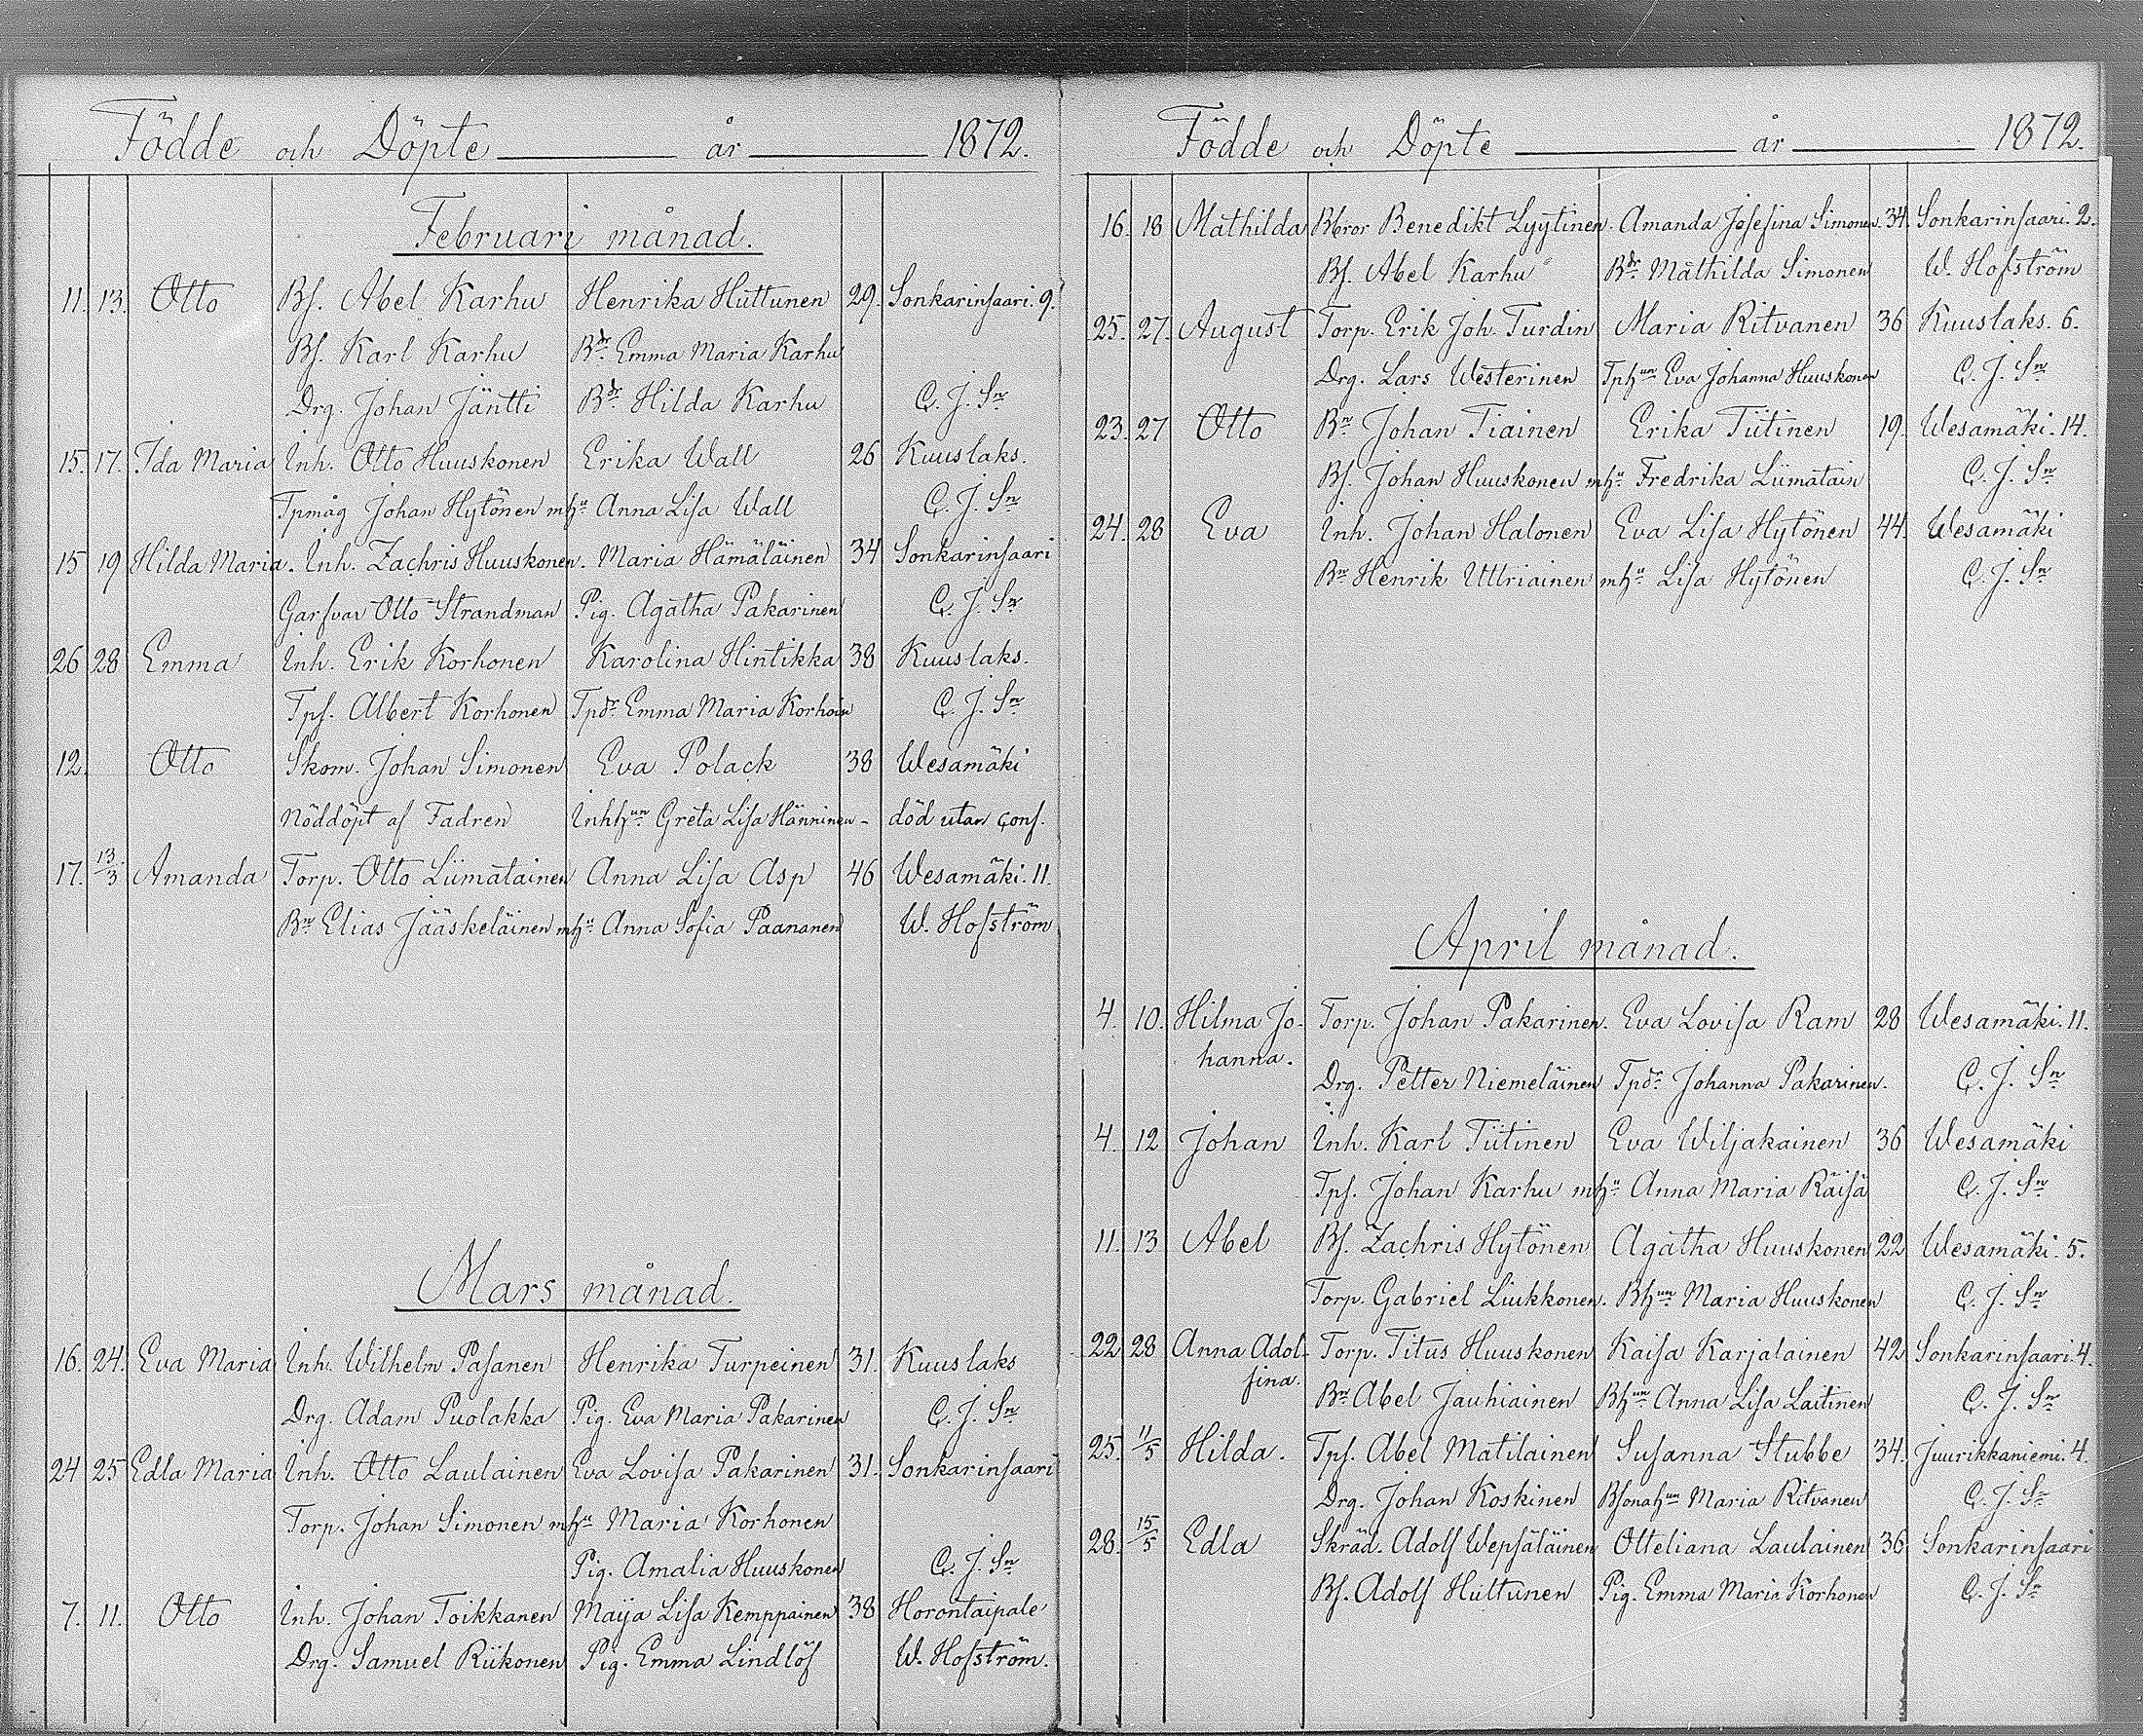 Födde och Döpte år 1872.
Februari månad.
11. 13. Otto Bs. Abel Karhu Henrika Huttunen 29. Sonkarinsaari. 9.
Bs. Karl Karhu Bdr. Emma Maria Karhu
Drg. Johan Jäntti Bdr. Hilda Karhu C. J. Sn
15. 17. Ida Maria Inh. Otto Huuskonen Erika Wall 26 Kuuslaks.
Tpmåg Johan Hytönen mhu Anna Lisa Wall C. J. Sn
15 19 Hilda Maria. Inh. Zachris Huuskonen. Maria Hämäläinen 34 Sonkarinsaari
Garfvar Otto Strandman Pig. Agatha Pakarinen C. J. Sn
26 28 Emma Inh. Erik Korhonen Karolina Hintikka 38 Kuuslaks.
Tps. Albert Korhonen Tpdr Emma Maria Korhoin C. J. Sn
12. Otto Skom. Johan Simonen Eva Polack 38 Wesamäki
Nöddöpt af Fadren Inhhun Greta Lisa Hänninen - död utan conf.
17. 13/3 Amanda Torp. Otto Liimatainen Anna Lisa Asp 46 Wesamäki. 11.
Bn Elias Jääskeläinen mhu Anna Sofia Paananen W. Hofström
Mars månad.
16. 24. Eva Maria Inh. Wilhelm Pasanen Henrika Turpeinen 31. Kuuslaks
Drg. Adam Puolakka Pig. Eva Maria Pakarinen C. J. Sn
24 25 Edla Maria Inh. Otto Laulainen Eva Lovisa Pakarinen 31. Sonkarinsaari
Torp. Johan Simonen mhu Maria Korhonen
Pig. Amalia Huuskonen C. J. Sn
7. 11. Otto Inh. Johan Toikkanen Maija Lisa Kemppainen 38 Horontaipale
Drg. Samuel Riikonen Pig. Emma Lindlöf W. Hofström.
Födde och Döpte år 1872.
16. 18 Mathilda Bbror Benedikt Lyytinen. Amanda Josefina Simonen. 34. Sonkarinsaari. 2.
Bs. Abel Karhu Bdr. Mathilda Simonen W. Hofström
25. 27. August Torp. Erik Joh. Turdin Maria Ritvanen 36 Kuuslaks. 6.
Drg. Lars Westerinen Tphun Eva Johanna Huuskonen C. J. Sn
23. 27 Otto Bn Johan Tiainen Erika Tiitinen 19. Wesamäki. 14.
Bs. Johan Huuskonen mhu Fredrika Liimatain C. J. Sn
24. 28 Eva Inh. Johan Halonen Eva Lisa Hytönen 44. Wesamäki
Bn Henrik Uttriainen mhu Lisa Hytönen C. J. Sn
April månad.
4. 10. Hilma Jo- Torp. Johan Pakarinen. Eva Lovisa Ram 28 Wesamäki. 11.
hanna.
Drg. Petter Niemeläinen Tpdr Johanna Pakarinen. C. J. Sn
4. 12 Johan Inh. Karl Tiitinen Eva Wiljakainen 36 Wesamäki
Tps. Johan Karhu mhu Anna Maria Räisä C. J. Sn
11. 13 Abel Bs. Zachris Hytönen Agatha Huuskonen 22 Wesamäki. 5.
Torp. Gabriel Liukkonen. Bhun Maria Huuskonen C. J. Sn
22 28 Anna Adol- Torp. Titus Huuskonen Kaisa Karjalainen 42 Sonkarinsaari. 4.
fina.
Bn Abel Jauhiainen Bhun Anna Lisa Laitinen C. J. Sn
25. 11/5 Hilda. Tps. Abel Matilainen Susanna Stubbe 34. Juurikkaniemi. 4.
Drg. Johan Koskinen Bsonahun Maria Ritvanen C. J. Sn
28. 15/5 Edla Skräd. Adolf Wepsäläinen Otteliana Laulainen 36 Sonkarinsaari
Bs. Adolf Huttunen Pig. Emma Maria Korhonen C. J. Sn